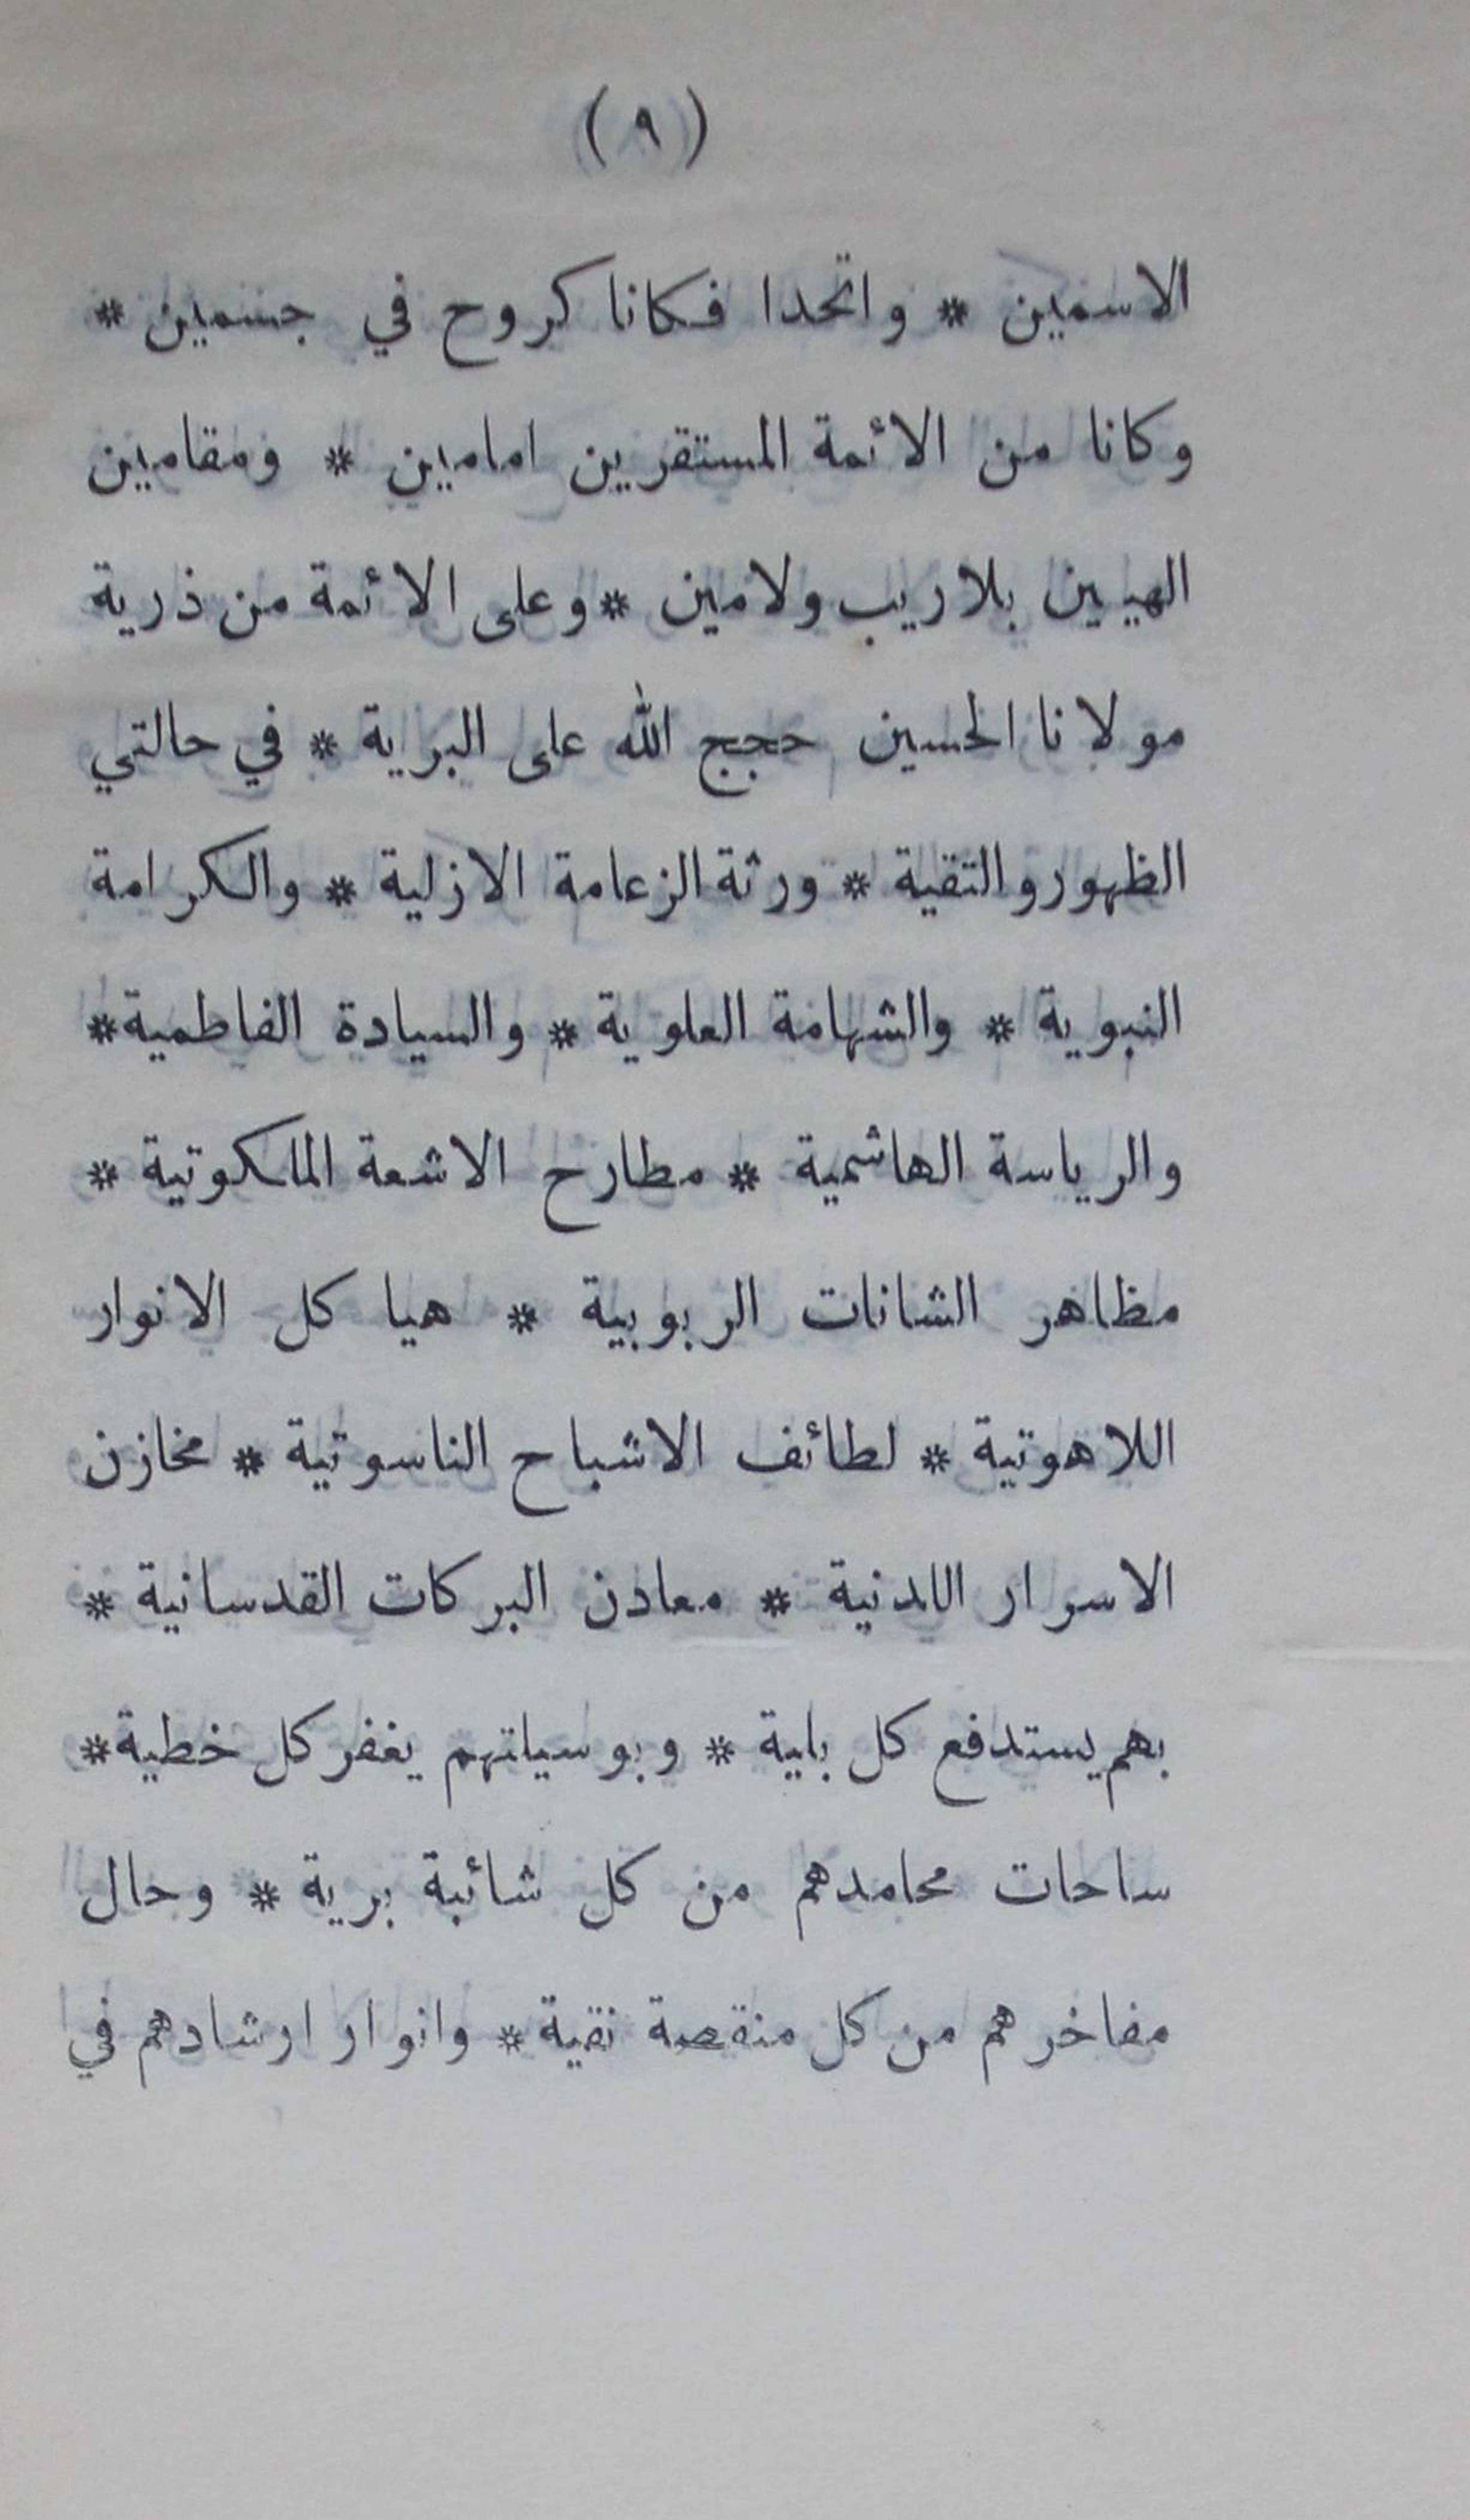 (٩)
الاسمين * واتحدا فكانا كروح في جسمين *
وكانا من الائمة المستقرين امامين * ومقامين
الهيين بلا ريب ولا مين * وعلى الائمة من ذرية
مولانا الحسين حجج الله على البرية * في حالتي
الظهور والتقية * ورثة الزعامة الازلية * والكرامة
النبوية * والشهامة العلوية * والسيادة الفاطمية *
والرياسة الهاشمية * مطارح الاشعة الملكوتية *
مظاهر الشانات الربوبية * هياكل الانوار
اللاهوتية * لطائف الاشباح الناسوتية * مخازن
الاسرار اللدنية * معادن البركات القدسانية *
بهم يستدفع كل بلية * وبوسيلتهم يغفر كل خطية *
ساحات محامدهم من كل شائبة برية * وحال
مفاخرهم من كل منقصة نقية * وانوار ارشادهم في